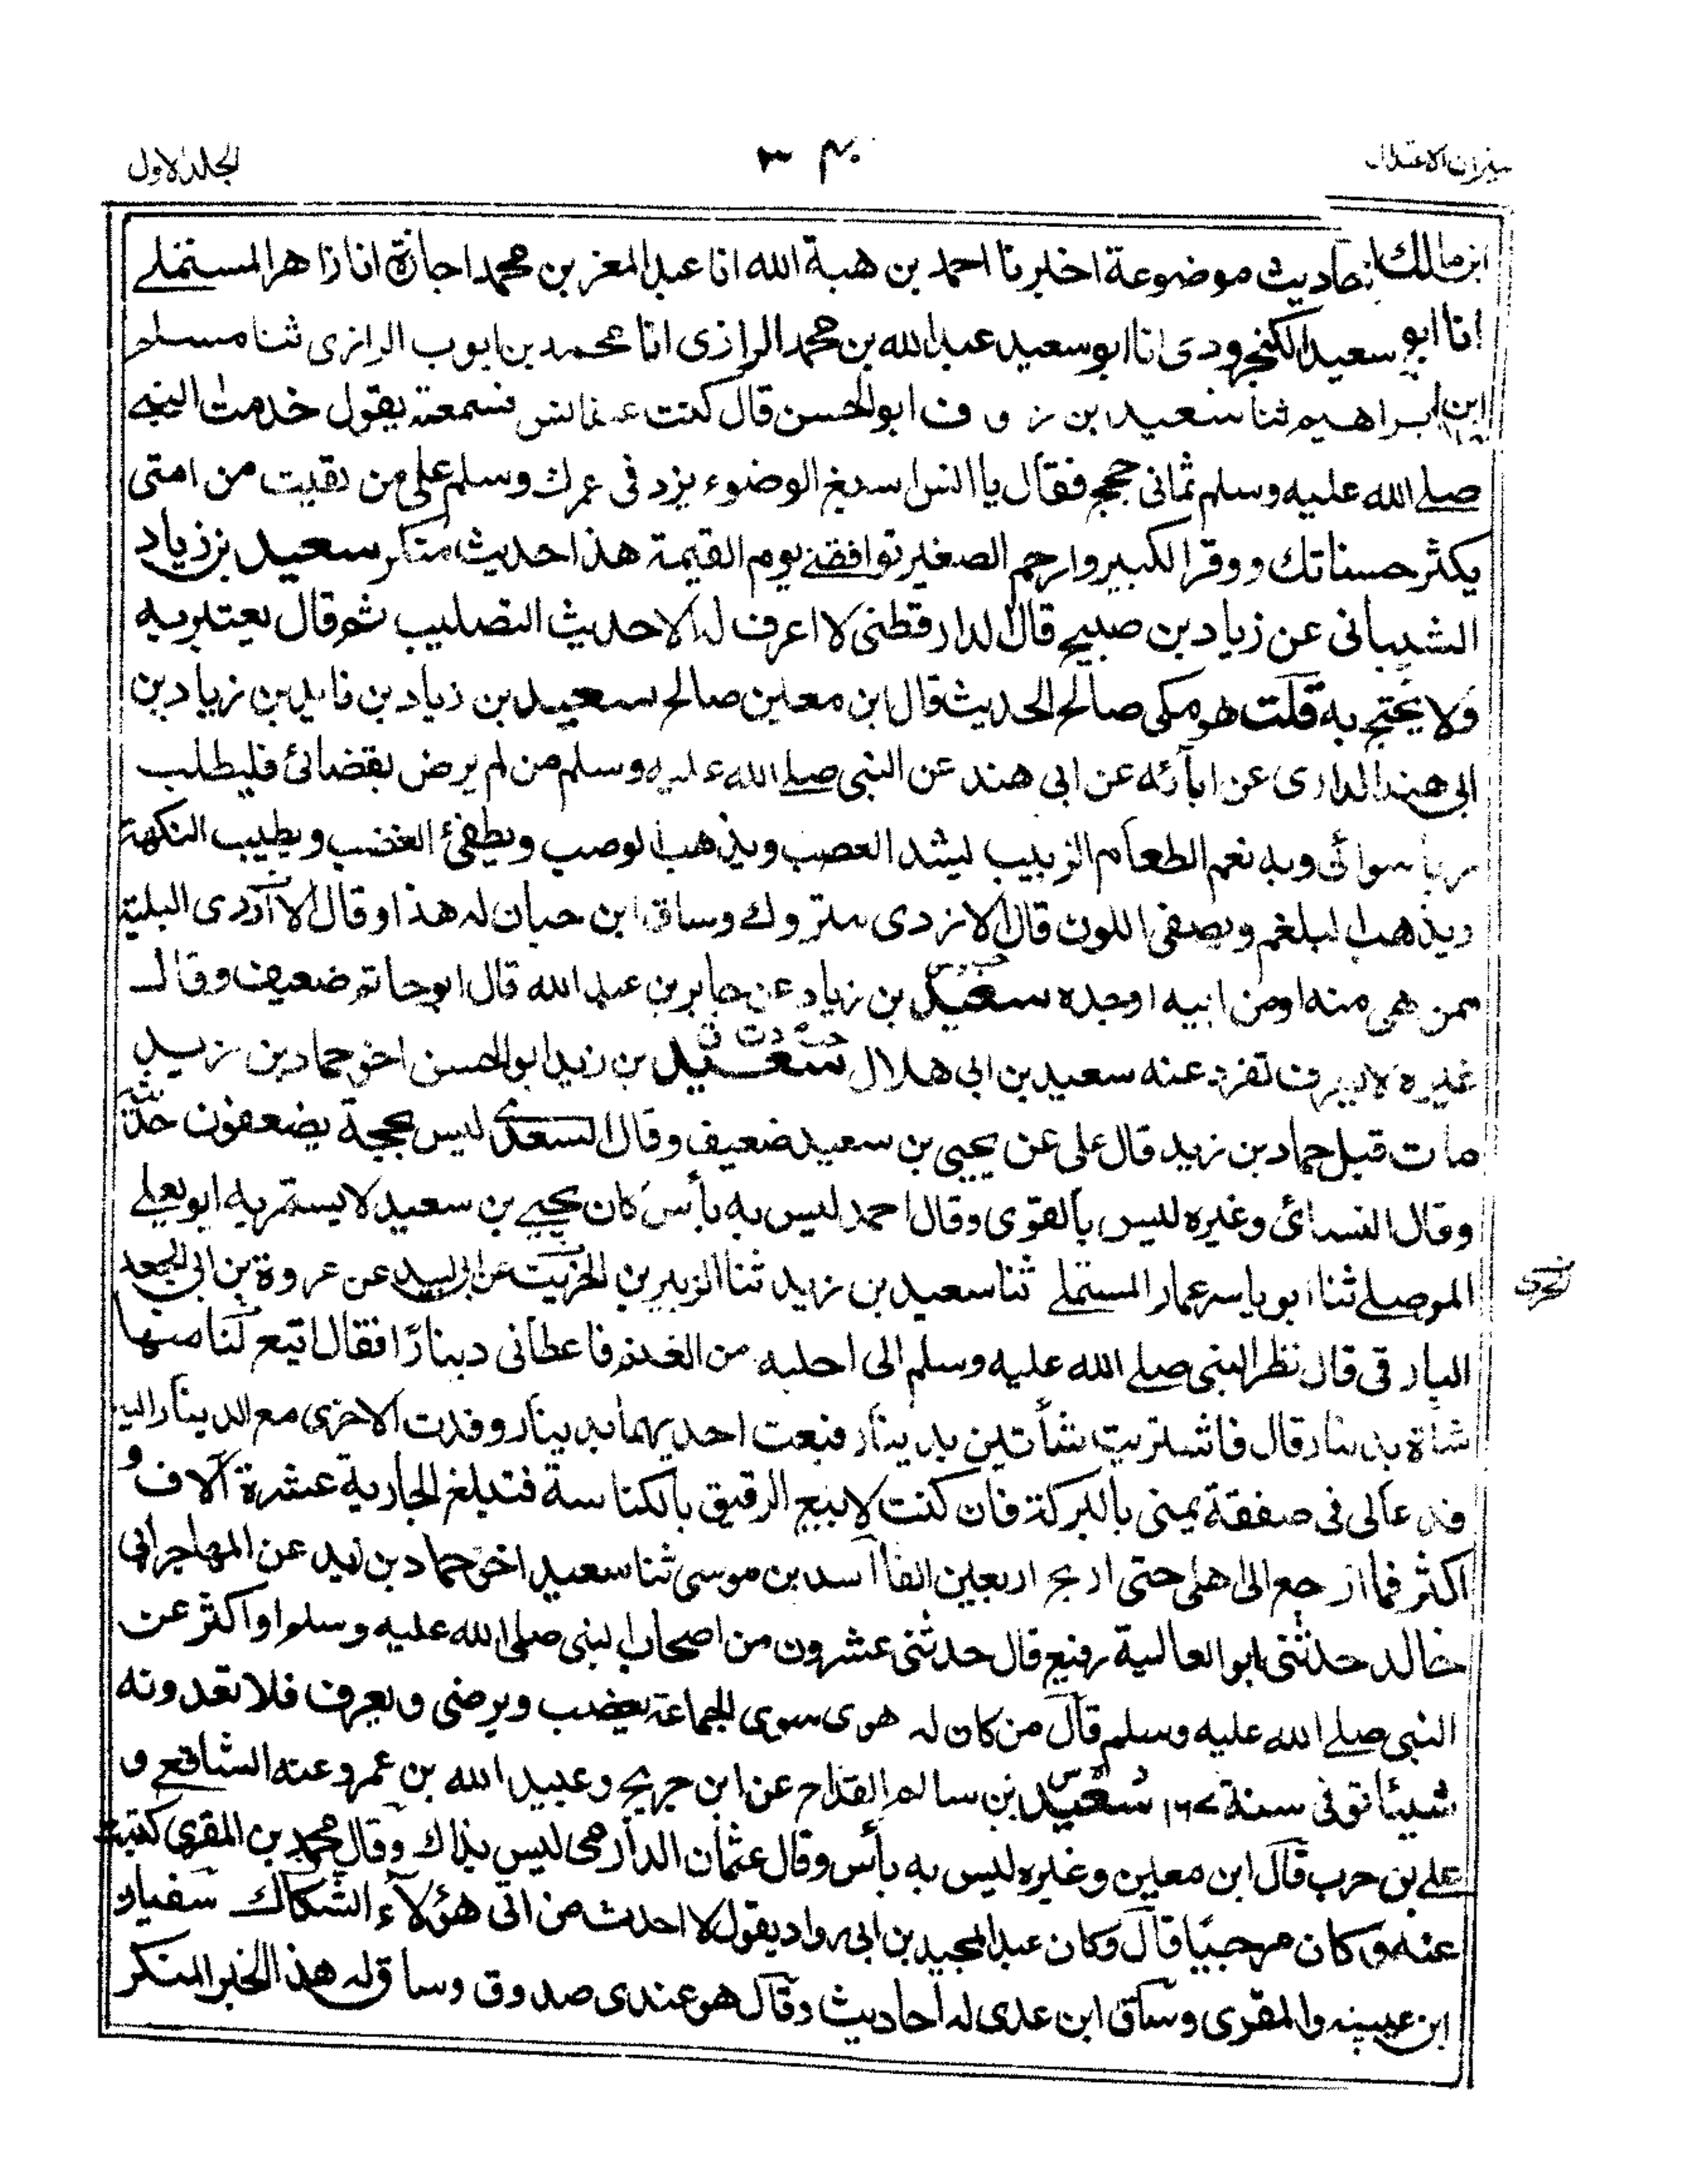 ميزان الاعتدال
الجلد الاول
ابن مالك احاديث موضوعة اخبرنا احمد بن هبة الله انا عبد المعز بن محمد اجازة انا زاهر المستملے
انا ابو سعيد الكنجرودى انا ابو سعيد عبد الله بن محمد الرازى انا محمد بن ايوب الرازى ثنا مسلم
ابن ابراهيم ثنا سعيد بن ز و ن ابو الحسن قال كنت عند انس فسمعته يقول خدمت النبے
صلے الله عليه وسلم ثمانى حجج فقال يا انس اسبغ الوضوء يزد فى عمرك وسلم على من لقيت من امتى
يكثر حسناتك ووقر الكبير وارحم الصغير توافقنے يوم القيمة هذا حديث منكر سعيد بن زياد
الشيبانى عن زياد بن صبيح قال الدارقطنى لا اعرف له الا حديث التصليب ثم قال يعتبر به
ولا يحتج به قلت هو مكى صالح الحديث قال ابن معين صالح سعيد بن زياد بن فايد بن زياد بن
ابى هند الدارى عن ابآئه عن ابى هند عن النبى صلے الله عليه وسلم من لم يرض بقضائى فليطلب
ربا سوائى وبه نعم الطعام الزبيب ليشد العصب ويذهب الوصب ويطفئ الغضب ويطيب النكهة
ويذهب البلغم ويصفى اللون قال الازدى متروك وساق ابن حبان له هذا وقال لا آدرى البلية
ممن هى منه او من ابيه او جده سعيد بن زياد عن جابر بن عبد الله قال ابو حاتم ضعيف وقال
غيره لا يعرف تفرد عنه سعيد بن ابى هلال سعيد بن زيد ابو الحسن اخو حماد بن زيد
مات قبل حماد بن زيد قال على عن يحيى بن سعيد ضعيف وقال السعدى ليس بحجة يضعفون حديثه
وقال النسائى وغيره ليس بالقوى وقال احمد ليس به بأس كان يحيے بن سعيد لا يستمريه ابو يعلے
الموصلے ثنا ابو ياسر عمار المستملے ثنا سعيد بن زيد ثنا الزبير بن الخريت عن ابى لبيد عن عروة بن ابى الجعد
البارقى قال نظر النبى صلے الله عليه وسلم الى احلبه من الغنم فاعطانى دينارًا فقال ابتع لنا منها
شاة بدينار قال فاشتريت شأتين بدينار فبعت احديهما بدينار وقدت الاخرى مع الدينار اليه
فدعا لى فى صفقة يمينى بالبركة فان كنت لابيع الرقيق بالكناسة فتبلغ الجارية عشرة آلاف و
اكثر فما ارجع الى اهلى حتى اربح اربعين الفا اسد بن موسى ثنا سعيد اخو حماد بن زيد عن المهاجر ابى
خالد حدثنى ابو العالية رفيع قال حدثنى عشرون من اصحاب النبى صلى الله عليه وسلم او اكثر عن
النبى صلے الله عليه وسلم قال من كان له هوى سوى الجماعة يغضب ويرضى ويعرف فلا تعدونه
شيئا توفى سنة ١٦٧ سعيد بن سالم القداح عن ابن جريج وعبيد الله بن عمر وعنه الشافعے و
علے بن حرب قال ابن معين وغيره ليس به بأس وقال عثمان الدارمى ليس بذاك وقال محمد بن المقرى كتبت
عنه وكان مرجئيا قال وكان عبد المجيد بن ابى رواد يقول لا احدث من اتى هؤلآء الشكاك سفيان
ابن عيينه والمقرى وساق ابن عدى له احاديث وقال هو عندى صدوق وساق له هذا الخبر المنكر